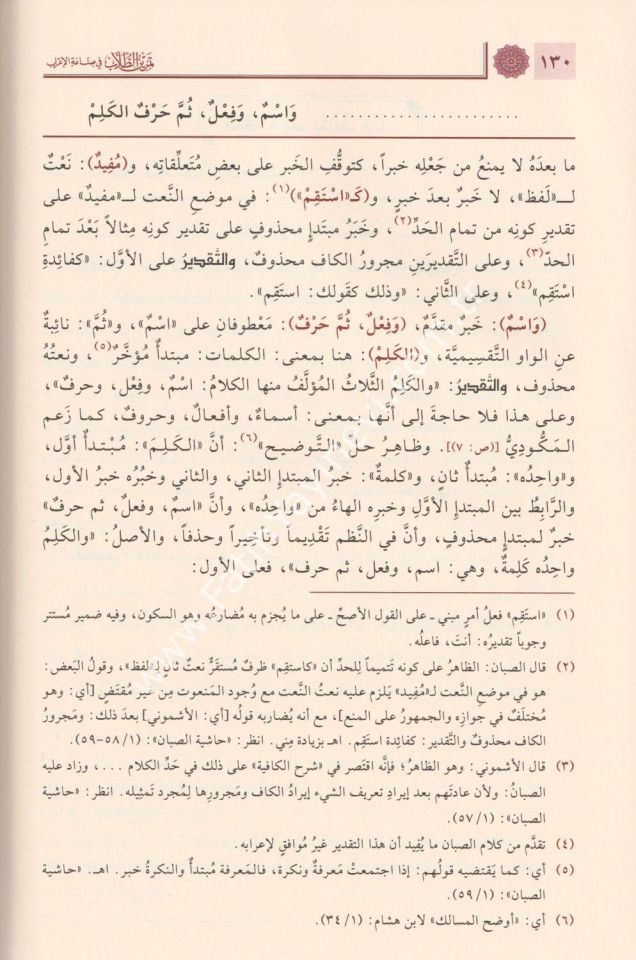 ١٣٠
تمرين الطلاب في صناعة الإعراب
....................... وَاسْمٌ، وَفِعْلٌ، ثُمَّ حَرْفٌ الكَلِمْ
ما بعدَهُ لا يمنعُ من جَعْلِه خبراً، كتوقُّفِ الخَبر على بعضِ مُتَعلِّقاتِه، و(مُفِيدٌ): نَعْتٌ
لـ«لَفظ»، لا خَبرٌ بعدَ خبرٍ، و(كَـ«اسْتَقِمْ»)(١): في موضعِ النَّعت لـ«مفيدٌ» على
تقديرِ كونِه من تمام الحَدِّ(٢)، وخَبَرُ مبتدإٍ محذوفٍ على تقدير كونِه مثالاً بَعْدَ تمامِ
الحدِّ(٣)، وعلى التَّقديرَينِ مجرورُ الكاف محذوفٌ، والتَّقديرُ على الأوَّل: «كفائِدةِ
اسْتَقِم»(٤)، وعلى الثَّاني: «وذلك كقَولك: استَقِم».
(وَاسْمٌ): خَبرٌ مقدَّمٌ، (وَفِعْلٌ، ثُمَّ حَرْفٌ): مَعْطوفانِ على «اسْمٌ»، و«ثُمَّ»: نائِبةٌ
عنِ الواو التَّقسِيميَّة، و(الكَلِمْ): هنا بمعنى: الكلمات: مبتدأٌ مُؤخَّرٌ(٥)، ونعتُهُ
محذوف، والتَّقديرُ: «والكَلِمُ الثَّلاثُ المُؤلَّفُ منها الكلامُ: اسْمٌ، وفِعْل، وحرفٌ»،
وعلى هذا فلا حاجةَ إلى أنَّها بمعنى: أسماءٌ، وأفعالٌ، وحروفٌ، كما زَعَم
المَكُّودِيُّ [(ص: ٧)]. وظاهِرُ حلِّ «التَّوضيح»(٦): أنَّ «الكَلِمَ»: مُبْتدأٌ أوَّل،
و«واحِدُه»: مُبتدأٌ ثانٍ، و«كلمةٌ»: خبرُ المبتدإِ الثاني، والثاني وخبُرُه خبرُ الأول،
والرَّابِطُ بين المبتدإِ الأوَّلِ وخبرِه الهاءُ من «واحِدُه»، وأنَّ «اسمٌ، وفعلٌ، ثم حرفٌ»
خبرٌ لمبتدإٍ محذوفٍ، وأنَّ في النَّظم تَقديماً وتأخيراً وحذفاً، والأصلُ: «والكَلِمُ
واحِدُه كَلِمةٌ، وهي: اسم، وفعل، ثم حرف»، فعلى الأول:
(١) «استَقِم» فعلُ أمرٍ مبني ـ على القول الأصحِّ ـ على ما يُجزم به مُضارعُه وهو السكون، وفيه ضمير مُستتر
وجوباً تقديرُه: أنتَ، فاعلُه.
(٢) قال الصبان: الظاهرُ على كونه تَتميماً للحدِّ أن «كاستَقِم» ظرفٌ مُستقَرٌّ نعتٌ ثانٍ لـ«لفظ»، وقولُ البَعض:
هو في موضع النَّعت لـ«مُفيد» يَلزم عليه نعتُ النَّعت مع وُجود المَنعوت مِن غير مُقتَضٍ [أي: وهو
مُختلَفٌ في جوازه والجمهورُ على المنع]، مع أنه يُضاربه قولُه [أي: الأشموني] بعدَ ذلك: ومَجرورُ
الكاف محذوفٌ والتَّقدير: كفائدة استَقِم. اهـ بزيادة مِني. انظر: «حاشية الصبان»: (٥٨/١-٥٩).
(٣) قال الأشموني: وهو الظاهرُ؛ فإنَّه اقتَصر في «شرح الكافية» على ذلك في حَدِّ الكلام ...، وزاد عليه
الصبانُ: ولأن عادتَهم بعد إيرادِ تعريف الشيء إيرادُ الكاف ومَجرورِها لِمُجرد تَمثِيله. انظر: «حاشية
الصبان»: (٥٧/١).
(٤) تقدَّم من كلام الصبان ما يُفِيد أن هذا التقدير غيرُ مُوافقٍ لإعرابه.
(٥) أي: كما يَقتضيه قولُهم: إذا اجتمعتْ مَعرفةٌ ونكرة، فالمَعرفة مُبتدأٌ والنكرةُ خبر. اهـ. «حاشية
الصبان»: (٥٩/١).
(٦) أي: «أوضح المسالك» لابن هشام: (٣٤/١).